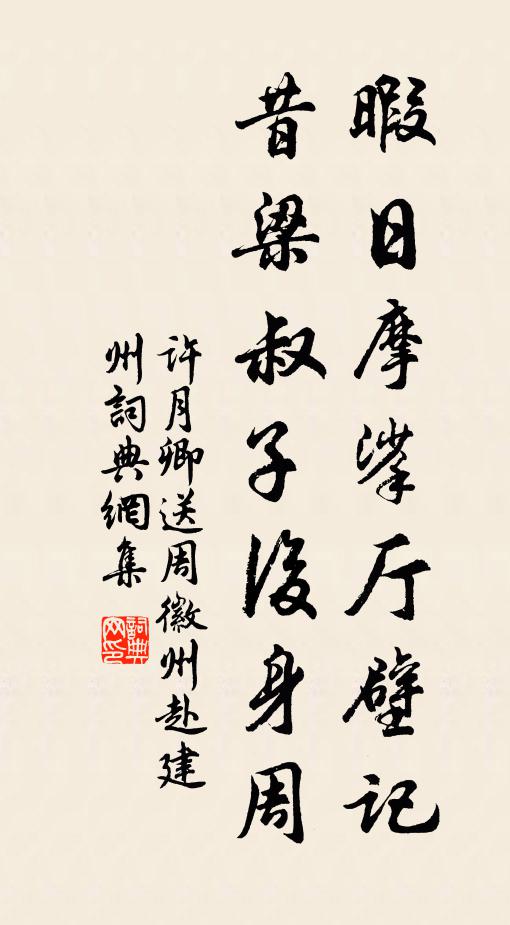 暇日摩挲厅壁记
昔梁叔子後身周
许月卿送周徽州赴建
州詞典網集
詞典网印